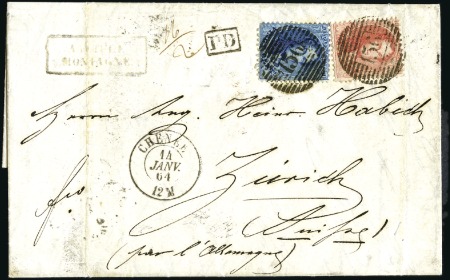 MONTAGNE
PD
Herrn Aug. Heinr. Habich
CHÊNÉE
14
JANV.
64
12 M
fro
Zürich
Suisse
(par l'Allemagne)